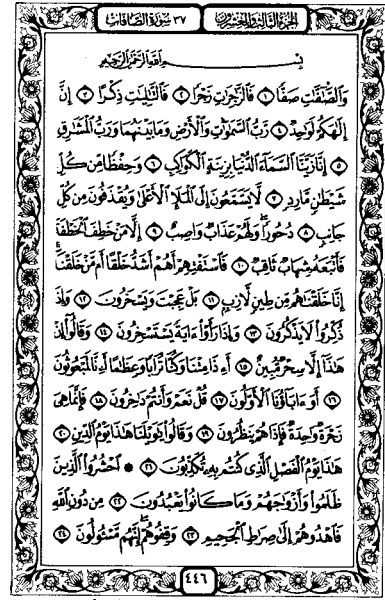 الجزء الثالث والعشرون ٣٧ سورة الصافات
بِسْمِ ٱللَّهِ ٱلرَّحْمَٰنِ ٱلرَّحِيمِ
وَٱلصَّٰٓفَّٰتِ صَفًّا ١ فَٱلزَّٰجِرَٰتِ زَجْرًا ٢ فَٱلتَّٰلِيَٰتِ ذِكْرًا ٣ إِنَّ
إِلَٰهَكُمْ لَوَٰحِدٌ ٤ رَّبُّ ٱلسَّمَٰوَٰتِ وَٱلْأَرْضِ وَمَا بَيْنَهُمَا وَرَبُّ ٱلْمَشَٰرِقِ
٥ إِنَّا زَيَّنَّا ٱلسَّمَآءَ ٱلدُّنْيَا بِزِينَةٍ ٱلْكَوَاكِبِ ٦ وَحِفْظًا مِّن كُلِّ
شَيْطَٰنٍ مَّارِدٍ ٧ لَّا يَسَّمَّعُونَ إِلَى ٱلْمَلَإِ ٱلْأَعْلَىٰ وَيُقْذَفُونَ مِن كُلِّ
جَانِبٍ ٨ دُحُورًا وَلَهُمْ عَذَابٌ وَاصِبٌ ٩ إِلَّا مَنْ خَطِفَ ٱلْخَطْفَةَ
فَأَتْبَعَهُۥ شِهَابٌ ثَاقِبٌ ١٠ فَٱسْتَفْتِهِمْ أَهُمْ أَشَدُّ خَلْقًا أَم مَّنْ خَلَقْنَآ
إِنَّا خَلَقْنَٰهُم مِّن طِينٍ لَّازِبٍۭ ١١ بَلْ عَجِبْتَ وَيَسْخَرُونَ ١٢ وَإِذَا
ذُكِّرُوا۟ لَا يَذْكُرُونَ ١٣ وَإِذَا رَأَوْا۟ ءَايَةً يَسْتَسْخِرُونَ ١٤ وَقَالُوٓا۟ إِنْ
هَٰذَآ إِلَّا سِحْرٌ مُّبِينٌ ١٥ أَءِذَا مِتْنَا وَكُنَّا تُرَابًا وَعِظَٰمًا أَءِنَّا لَمَبْعُوثُونَ
١٦ أَوَءَابَآؤُنَا ٱلْأَوَّلُونَ ١٧ قُلْ نَعَمْ وَأَنتُمْ دَٰخِرُونَ ١٨ فَإِنَّمَا هِىَ
زَجْرَةٌ وَٰحِدَةٌ فَإِذَا هُمْ يَنظُرُونَ ١٩ وَقَالُوا۟ يَٰوَيْلَنَا هَٰذَا يَوْمُ ٱلدِّينِ ٢٠
هَٰذَا يَوْمُ ٱلْفَصْلِ ٱلَّذِى كُنتُم بِهِۦ تُكَذِّبُونَ ٢١ ۞ ٱحْشُرُوا۟ ٱلَّذِينَ
ظَلَمُوا۟ وَأَزْوَٰجَهُمْ وَمَا كَانُوا۟ يَعْبُدُونَ ٢٢ مِن دُونِ ٱللَّهِ
فَٱهْدُوهُمْ إِلَىٰ صِرَٰطِ ٱلْجَحِيمِ ٢٣ وَقِفُوهُمْ إِنَّهُم مَّسْـُٔولُونَ ٢٤
٤٤٦